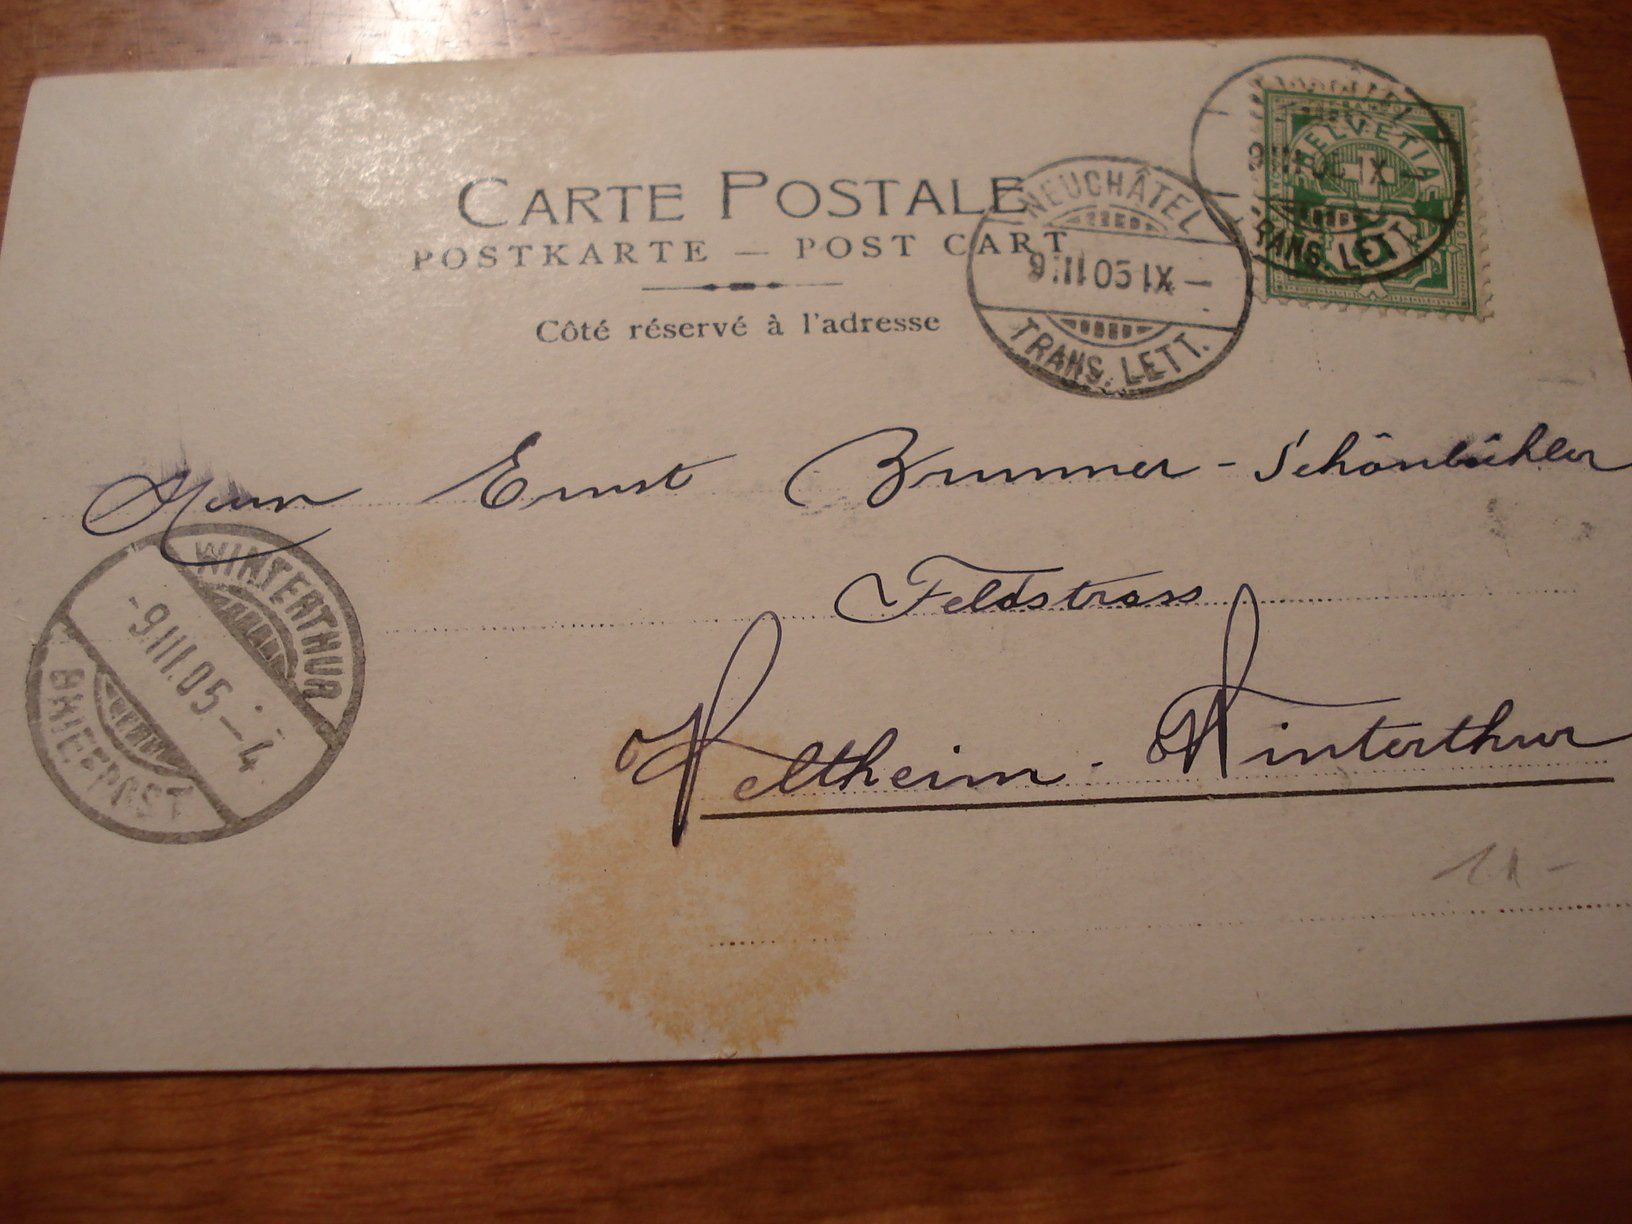 CARTE POSTALE
POSTKARTE — POST CART
Côté réservé à l'adresse
NEUCHÂTEL
9.III.05 IX —
TRANS. LETT.
HELVETIA
IX —
TRANS. LETT.
Herrn Ernst Brunner - Schönbühler
Feldstrass
Veltheim - Winterthur
WINTERTHUR
-9.III.05.—4
BRIEFPOST